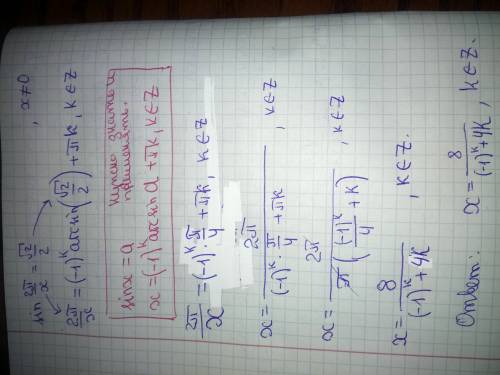 sin 2π/x = √2/2 , x≠0
2π/x = (-1)^k arcsin(√2/2) + πk, k∈Z
sin x = a нужно знать и применять.
x = (-1)^k arcsin a + πk, k∈Z
2π/x = (-1)^k · π/4 + πk, k∈Z
x = 2π/((-1)^k · π/4 + πk) , k∈Z
x = 2π/(π((-1)^k/4 + k)) , k∈Z
x = 8/((-1)^k + 4k) , k∈Z.
Ответ: x = 8/((-1)^k + 4k) , k∈Z.